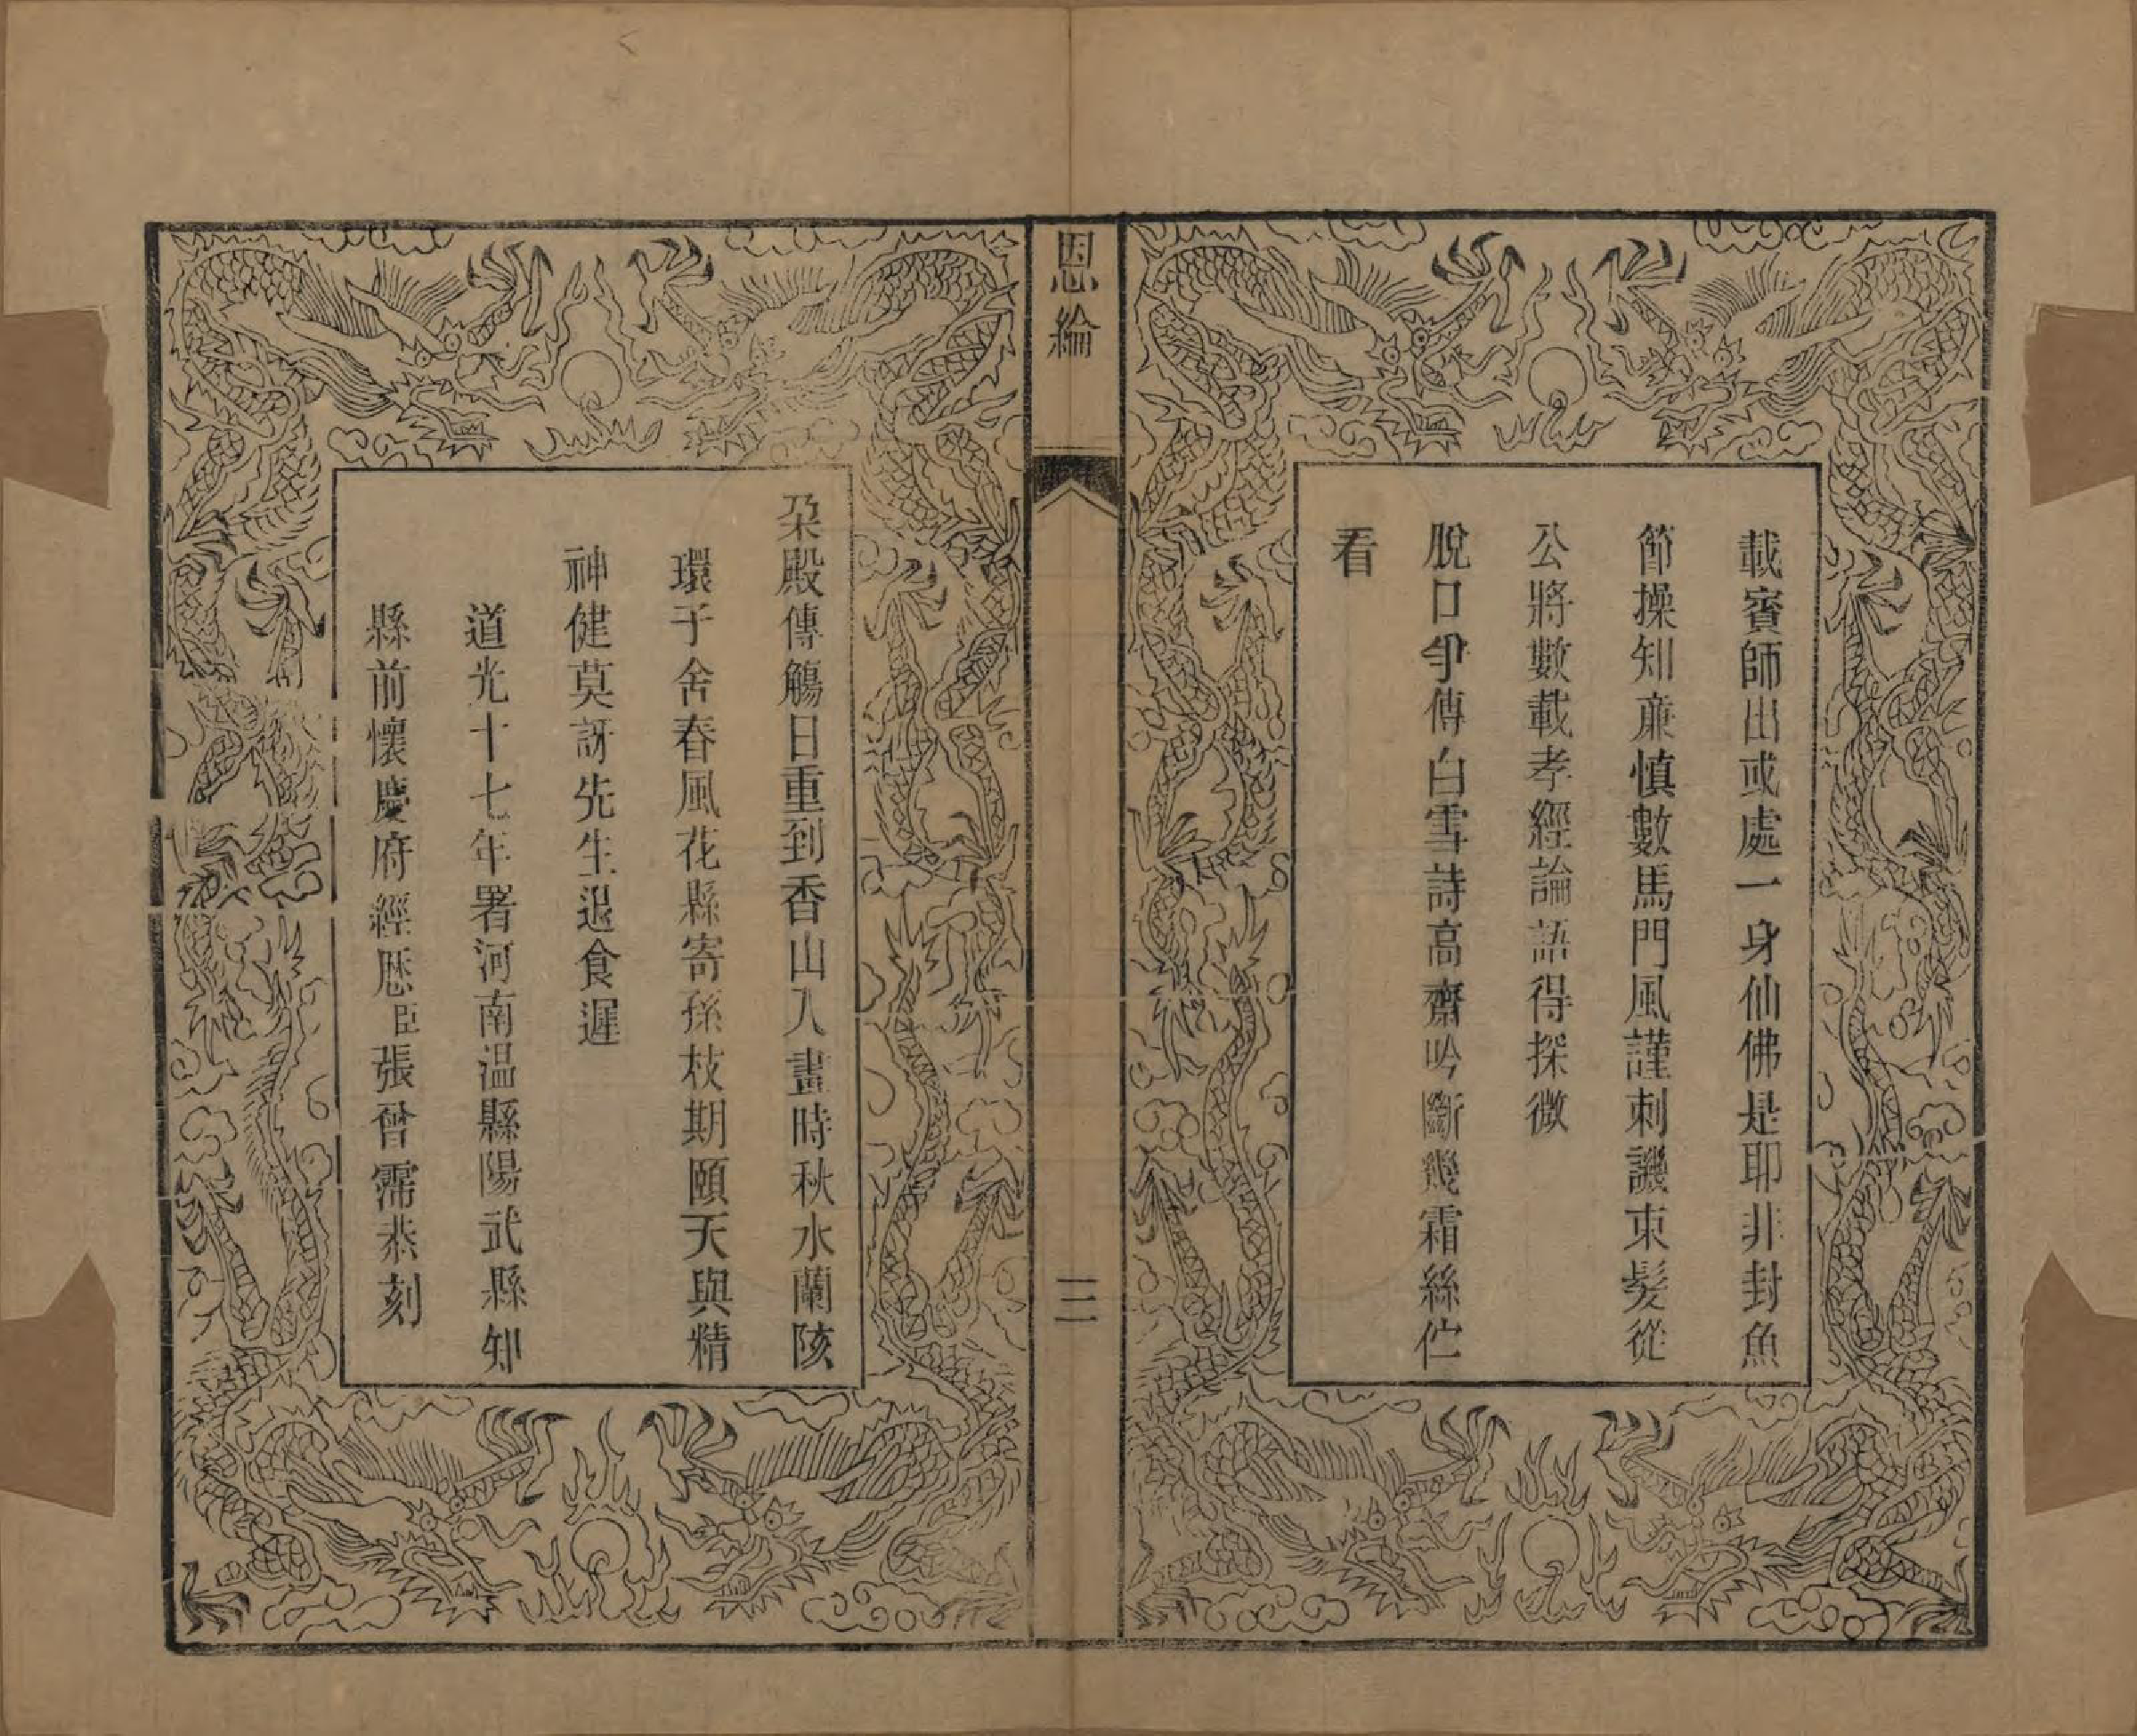 載賓師出或處一身仙佛是耶非封魚
節操知亷慎數馬門風謹刺譏束髮從
公將數載孝經論語得探微
脫口爭傳白雪詩高齋吟斷幾霜絲伫
看
恩綸
三
朶殿傳觴日重到香山入畫時秋水蘭陔
環子舍春風花縣寄孫枝期頤天與精
神健莫訝先生退食遲
道光十七年署河南温縣陽武縣知
縣前懷慶府經歷臣張曾霈恭刻